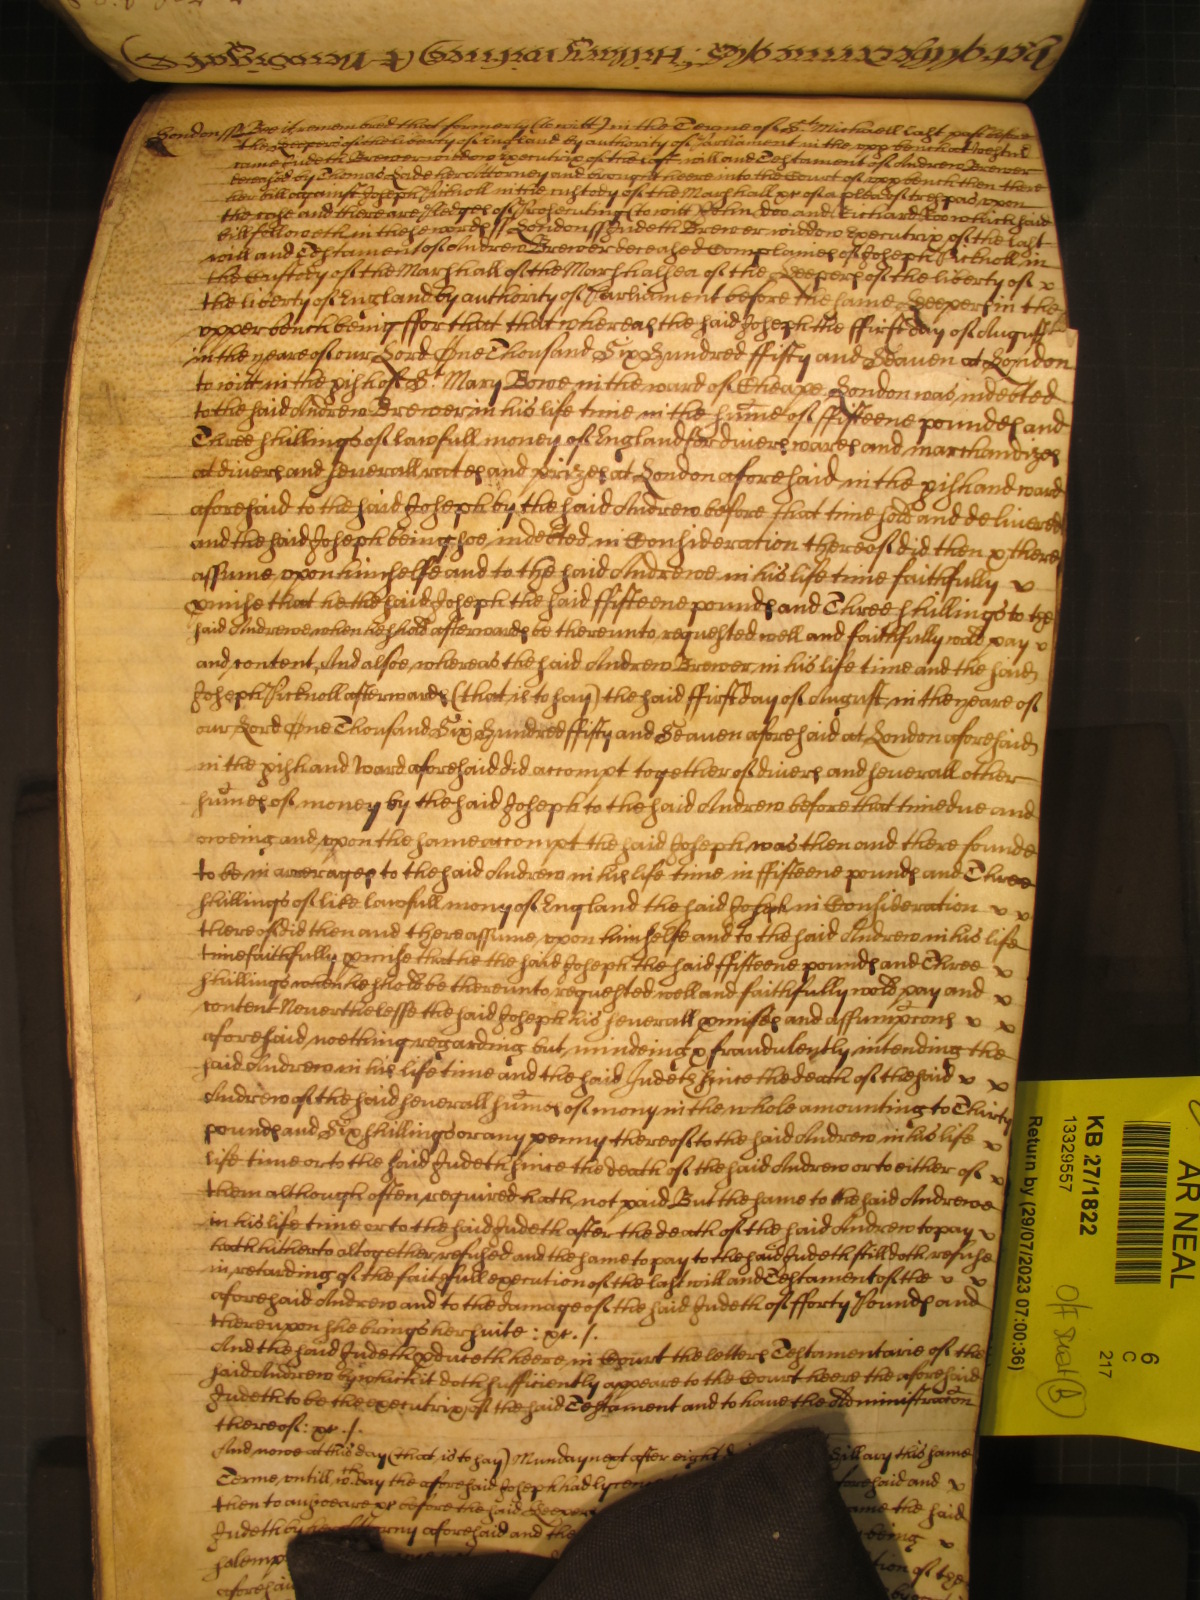 Londonss Bee it remembred that formerly (to witt) in the Terme of St Michaell last past before
the Keepers of the liberty of England by authority of Parliament in the upp bench at Westm
came Judeth Brewer widdow executrix of the last will and Testament of Andrew Brewer
deceased by Thomas Eade her Attorney and brought heere into the Court of upp bench then there
her bill against Joseph Picknoll in the custody of the Marshall &c of a plea of trespas upon
the case and there are pledges of Prosecuting (to witt) John Doo and Richard Roo which said
bill followeth in these words ss Londonss Judeth Brewer widdow Executrix of the last
will and Testament of Andrew Brewer deceased Complaines of Joseph Picknoll in
the Custody of the Marshall of the Marshalsea of the Keepers of the liberty of
the liberty of England by authority of Parliament before the same Keepers in the
upper bench being ffor that that whereas the said Joseph the ffirst day of August
in the yeare of our Lord One Thousand Six Hundred ffifty and Seaven at London
to witt in the pish of St Mary Bowe in the ward of Cheape London was indebted
to the said Andrew Brewer in his life time in the sume of ffifteene pounds and
Three shillings of lawfull money of England for divers wares and marchandizes
at divers and severall rates and prizes at London aforesaid in the pish and ward
aforesaid to the said Joseph by the said Andrew before that time sold and delivered
and the said Joseph being soe indebted in Consideration thereof did then & there
assume upon himselfe and to the said Andrewe in his life time faithfully
pmise that he the said Joseph the said ffifteene pounds and Three shillings to the
said Andrewe when he shold afterwards be thereunto requested well and faithfully wold pay
and content And alsoe whereas the said Andrew Brewer in his life time and the said
Joseph Picknoll afterwards (that is to say) the said ffirst day of August in the yeare of
our Lord One Thousand Six Hundred ffifty and Seaven aforesaid at London aforesaid
in the pish and Ward aforesaid did accompt together of divers and severall other
sumes of money by the said Joseph to the said Andrew before that time due and
oweing and upon the same accompt the said Joseph was then and there founde
to be in arrerages to the said Andrew in his life time in ffifteene pounds and Three
shillings of like lawfull mony of England the said Joseph in Consideration
thereof did then and there assume upon himselfe and to the said Andrew in his life
time faithfully pmise that he the said Joseph the said ffifteene pounds and Three
shillings when he shold be thereunto requested well and faithfully wold pay and
content Neverthelesse the said Joseph his severall pmises and assumpcons
aforesaid noething regarding but mindeing & fraudulently intending the
said Andrew in his life time and the said Judeth since the death of the said
Andrew of the said severall sumes of mony in the whole amounting to Thirty
pounds and Six shillings or any penny thereof to the said Andrew in his life
life time or to the said Judeth since the death of the said Andrew or to either of
them although often required hath not paid But the same to the said Andrewe
in his life time or to the said Judeth after the death of the said Andrew to pay
hath hitherto altogether refused and the same to pay to the said Judeth still doth refuse
in retarding of the faithfull execution of the last will and Testament of the
aforesaid Andrew and to the damage of the said Judeth of fforty Pounds and
thereupon she brings her suite : &c ./.
And the said Judeth pduceth heere in Court the letters Testamentarie of the
said Andrew by which it doth sufficiently appeare to the Court heere the aforesaid
Judeth to be the executrix of the said Testament and to have the Administracon
thereof : &c ./.
And nowe at this day (that is to say) Munday next after eight Hillary this same
Terme untill wch day the aforesaid Joseph had lycence aforesaid and
then to answeare &c before the said Keepers came the said
Judeth by her Attorny aforesaid and the being
aforesaid
AR NEAL
6
C
217
KB 27/1822
13329557
Return by (29/07/2023 07:00:36)